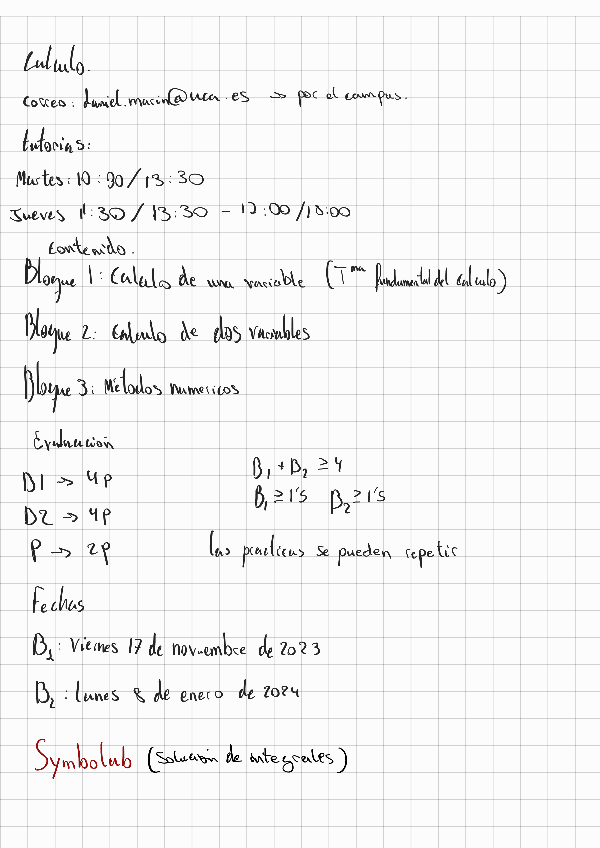 Calculo.
correo: daniel.marin@uca.es → por el campus.
tutorias:
Martes: 10:30/13:30
Jueves 11:30/13:30 - 17:00/18:00
Contenido.
Bloque 1: Calculo de una variable (Tma fundamental del calculo)
Bloque 2: Calculo de dos variables
Bloque 3: Métodos numericos
Evaluacion
B1 → 4P
B1 + B2 ≥ 4
B1 ≥ 1's B2 ≥ 1's
B2 → 4P
P → 2P
las practicas se pueden repetir
Fechas
B1: Viernes 17 de noviembre de 2023
B2: lunes 8 de enero de 2024
Symbolab (solución de integrales)